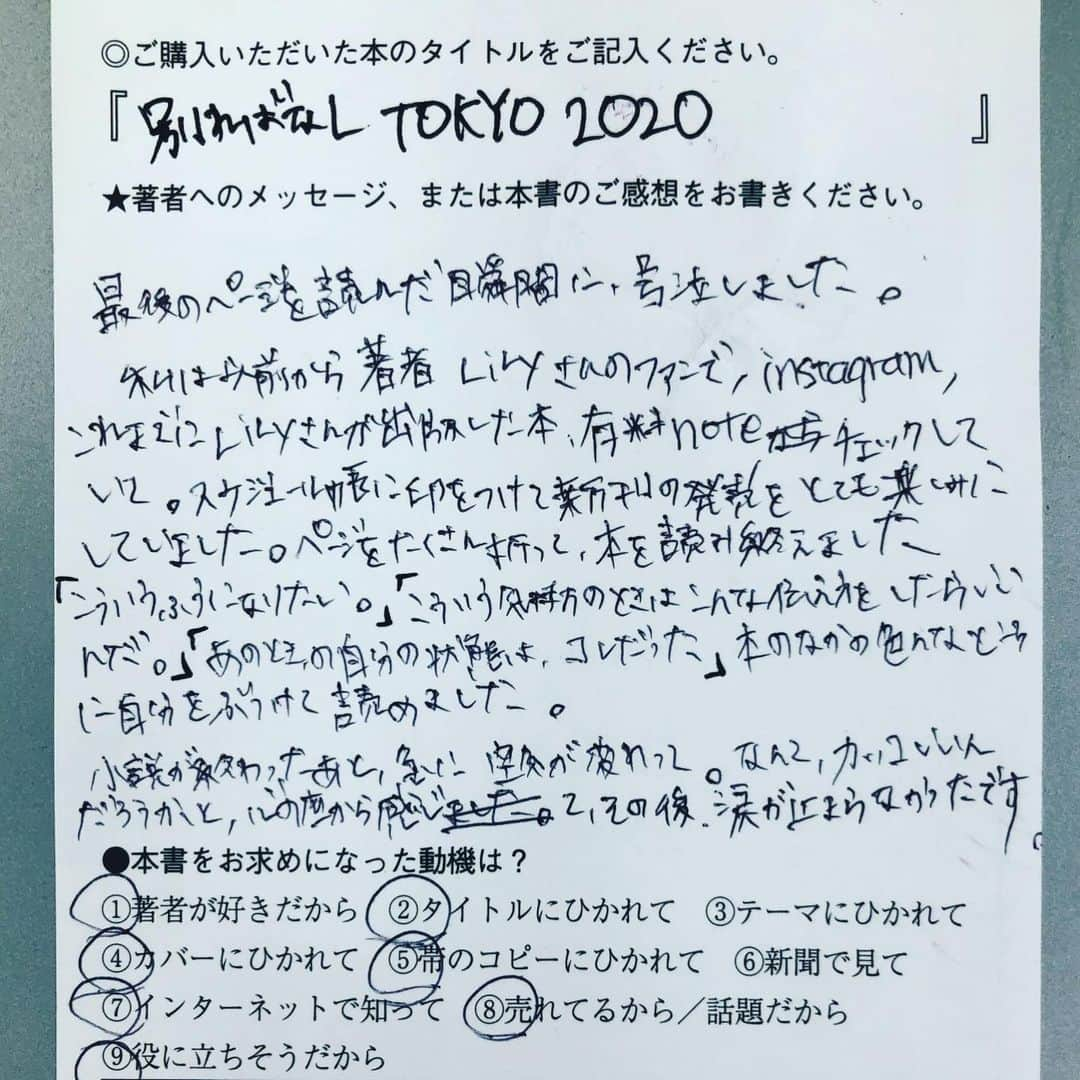 ◎ご購入いただいた本のタイトルをご記入ください。
『別ればなし TOKYO 2020』
★著者へのメッセージ、または本書のご感想をお書きください。
最後のページを読んだ瞬間に、号泣しました。
私は以前から著者 LiLyさんのファンで, instagram,
これまでにLiLyさんが出版した本、有料noteもチェックして
いて。スケジュール帳に印をつけて新刊の発売をとても楽しみに
していました。ページをたくさん折って、本を読み終えました
「こういうふうになりたい。」「こういう気持ちのときはこんな伝え方をしたらいい
んだ。」「あのときの自分の状態は、コレだった」本のなかの色んなところ
に自分をぶつけて読めました。
小説が終わったあと、急に空気が変わって。なんて、カッコいいん
だろうかと、心の底から感じて、その後、涙が止まらなかったです。
●本書をお求めになった動機は？
①著者が好きだから ②タイトルにひかれて ③テーマにひかれて
④カバーにひかれて ⑤帯のコピーにひかれて ⑥新聞で見て
⑦インターネットで知って ⑧売れてるから／話題だから
⑨役に立ちそうだから